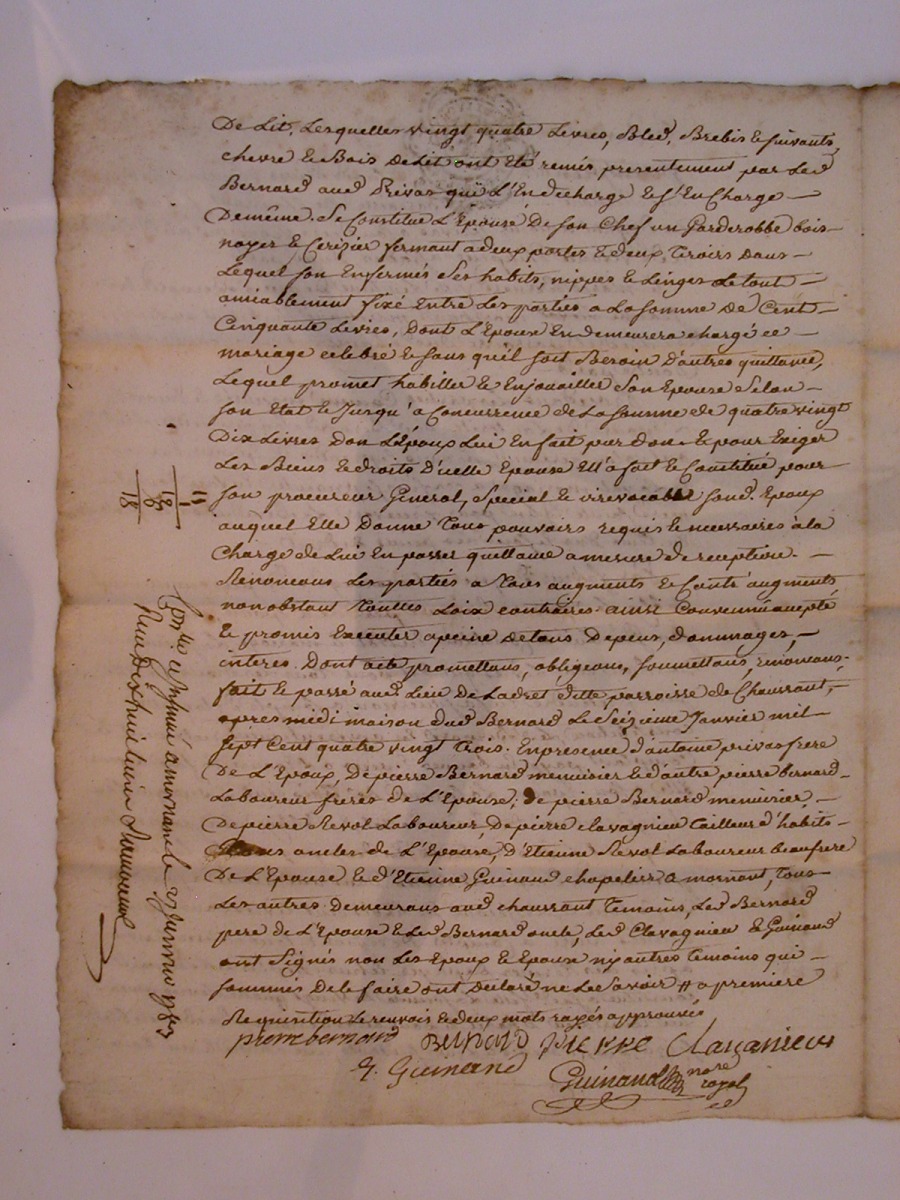 De Lit, Lesquelles vingt quatre Livres, Bled, Brebis & suivants,
chevre & Bois de Lit ont eté remis presentement par Led
Bernard aud Privas qui L'En decharge & s'En Charge
Demême se Constitue L'Epouse De son Chef un Garderobbe bois
noyer & Cerizier fermant a deux portes & deux tiroirs dans
Lequel son Enfermés ses habits, nippes & Linges Le tout
amiablement fixé Entre Les parties a La somme de Cent
Cinquante Livres, Dont L'Epoux En demeurera chargé ce
mariage celebré & sans qu'il soit Besoin D'autres quittance,
Lequel promet habiller & Enjouailler son Epouse selon
son Etat & Jusqu'a Concurrence de La somme de quatre vingt
Dix Livres don L'Epoux Lui En fait pur don & pour Exiger
Les Biens & droits d'icelle Epouse Ell'a fait & Constitué pour
son procureur General, Special & irrevocable sond Epoux
auquel Elle Donne tous pouvoirs requis & necessaires à la
Charge de Lui En passer quittance a mesure de reception.
Renoncans Les parties a tous augments & Contr'augments
nonobstant touttes Loix contraires. ainsi Convenu accepté
& promis Executer a peine de tous Depens, dommages,
interes. Dont acte promettans, obligeans, soumettans, renoncans.
fait & passé aud Lieu De Ladret ditte parroisse de Chaussant,
apres midi maison dud Bernard Le Seizieme Janvier mil
sept Cent quatre vingt trois. En presence d'antoine privas frere
De L'Epoux, De pierre Bernard menuisier & d'autre pierre bernard
Laboureur freres de L'Epouse; de pierre Bernard menuisier
De pierre Revol Laboureur, De pierre clavagnieu tailleur d'habits
oncles de L'Epouse, D'Etienne Revol Laboureur beaufrere
De L'Epouse & d'Etienne Guinand chapelier a mornant, tous
Les autres Demeurans aud chaussant temoins, Led Bernard
pere de L'Epouse & Led Bernard oncle, Led Clavagnieu & Guinand
ont Signés non Les Epoux & Epouse ny autres temoins qui
sommés de le faire ont declaré ne Le Savoir a premiere
Requisition Le renvois & deux mots rayés approuvés
pierre bernard Bernard PIERRE Clavanieux
E. Guinand
Guinand nore royal
11
1
18
18
Con.lé et insinué a mornant le 27 janvier 1783
Reçu Dix huit livres